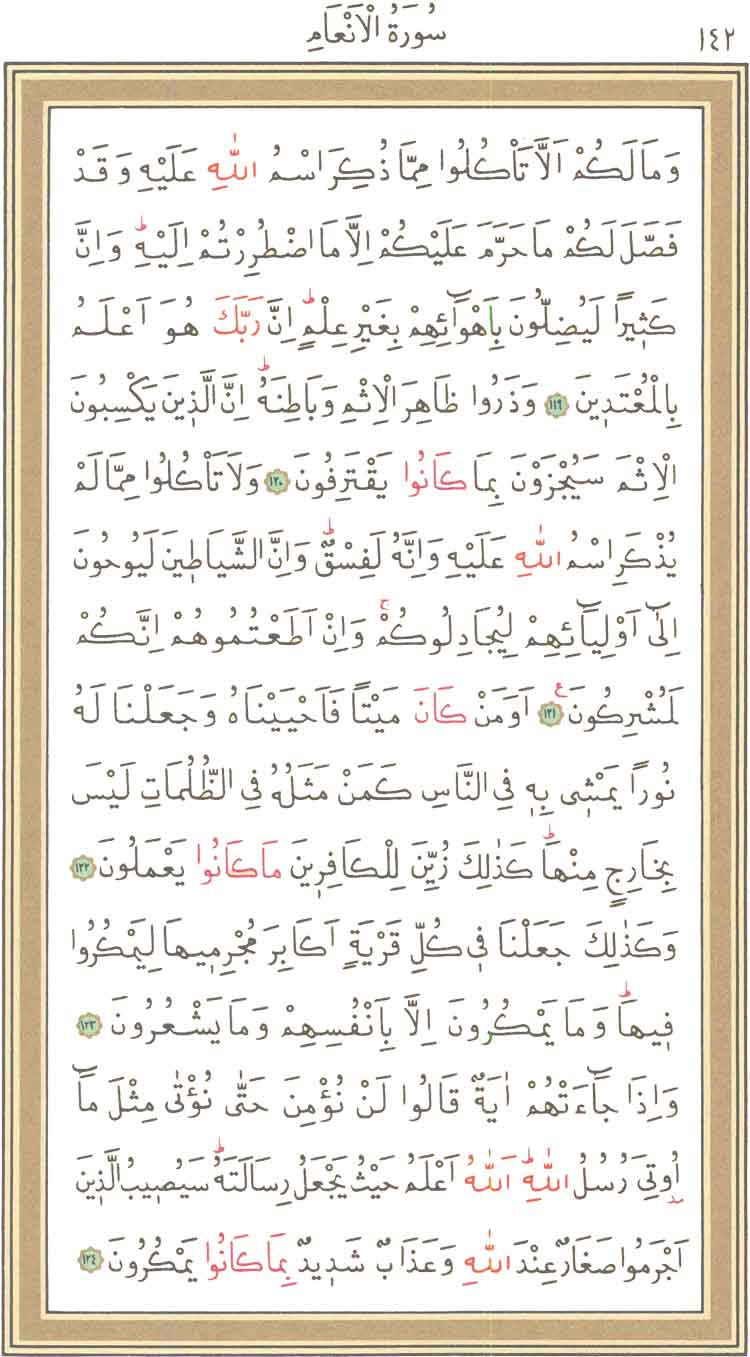 سُورَةُ الْاَنْعَامِ ١٤٢
وَمَا لَكُمْ اَلَّا تَأْكُلُوا مِمَّا ذُكِرَ اسْمُ اللّٰهِ عَلَيْهِ وَقَدْ
فَصَّلَ لَكُمْ مَا حَرَّمَ عَلَيْكُمْ اِلَّا مَا اضْطُرِرْتُمْ اِلَيْهِۜ وَاِنَّ
كَث۪يرًا لَيُضِلُّونَ بِاَهْوَٓائِهِمْ بِغَيْرِ عِلْمٍۜ اِنَّ رَبَّكَ هُوَ اَعْلَمُ
بِالْمُعْتَد۪ينَ ﴿١١٩﴾ وَذَرُوا ظَاهِرَ الْاِثْمِ وَبَاطِنَهُۜ اِنَّ الَّذ۪ينَ يَكْسِبُونَ
الْاِثْمَ سَيُجْزَوْنَ بِمَا كَانُوا يَقْتَرِفُونَ ﴿١٢٠﴾ وَلَا تَأْكُلُوا مِمَّا لَمْ
يُذْكَرِ اسْمُ اللّٰهِ عَلَيْهِ وَاِنَّهُ لَفِسْقٌۜ وَاِنَّ الشَّيَاط۪ينَ لَيُوحُونَ
اِلٰٓى اَوْلِيَٓائِهِمْ لِيُجَادِلُوكُمْۚ وَاِنْ اَطَعْتُمُوهُمْ اِنَّكُمْ
لَمُشْرِكُونَ۟ ﴿١٢١﴾ اَوَمَنْ كَانَ مَيْتًا فَاَحْيَيْنَاهُ وَجَعَلْنَا لَهُ
نُورًا يَمْش۪ي بِه۪ فِي النَّاسِ كَمَنْ مَثَلُهُ فِي الظُّلُمَاتِ لَيْسَ
بِخَارِجٍ مِنْهَاۜ كَذٰلِكَ زُيِّنَ لِلْكَافِر۪ينَ مَا كَانُوا يَعْمَلُونَ ﴿١٢٢﴾
وَكَذٰلِكَ جَعَلْنَا ف۪ي كُلِّ قَرْيَةٍ اَكَابِرَ مُجْرِم۪يهَا لِيَمْكُرُوا
ف۪يهَاۜ وَمَا يَمْكُرُونَ اِلَّا بِاَنْفُسِهِمْ وَمَا يَشْعُرُونَ ﴿١٢٣﴾
وَاِذَا جَٓاءَتْهُمْ اٰيَةٌ قَالُوا لَنْ نُؤْمِنَ حَتّٰى نُؤْتٰى مِثْلَ مَٓا
اُو۫تِيَ رُسُلُ اللّٰهِۜ اَللّٰهُ اَعْلَمُ حَيْثُ يَجْعَلُ رِسَالَتَهُۜ سَيُص۪يبُ الَّذ۪ينَ
اَجْرَمُوا صَغَارٌ عِنْدَ اللّٰهِ وَعَذَابٌ شَد۪يدٌ بِمَا كَانُوا يَمْكُرُونَ ﴿١٢٤﴾